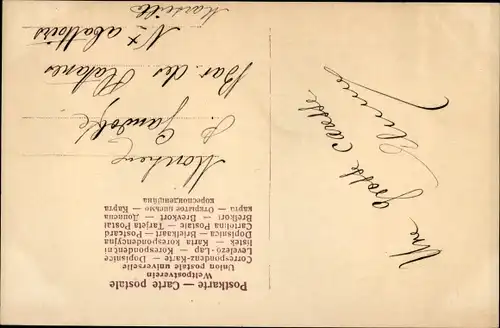 Postkarte — Carte postale
Weltpostverein
Union postale universelle
Correspondenz-Karte — Dopisnice
Levelező-Lap — Korespondenční
lístek — Karta korespondencyjna
Dopisnica — Briefkaart — Postcard
Cartolina Postale — Tarjeta Postal
Brefkort — Brevkort — Дописна
карта — Открытое письмо — Карта
кореспонденцiйна
Monsieur
J. Gandolfe
Bar des Platanes
Nx abattoirs
Marseille
Une grosse caresse